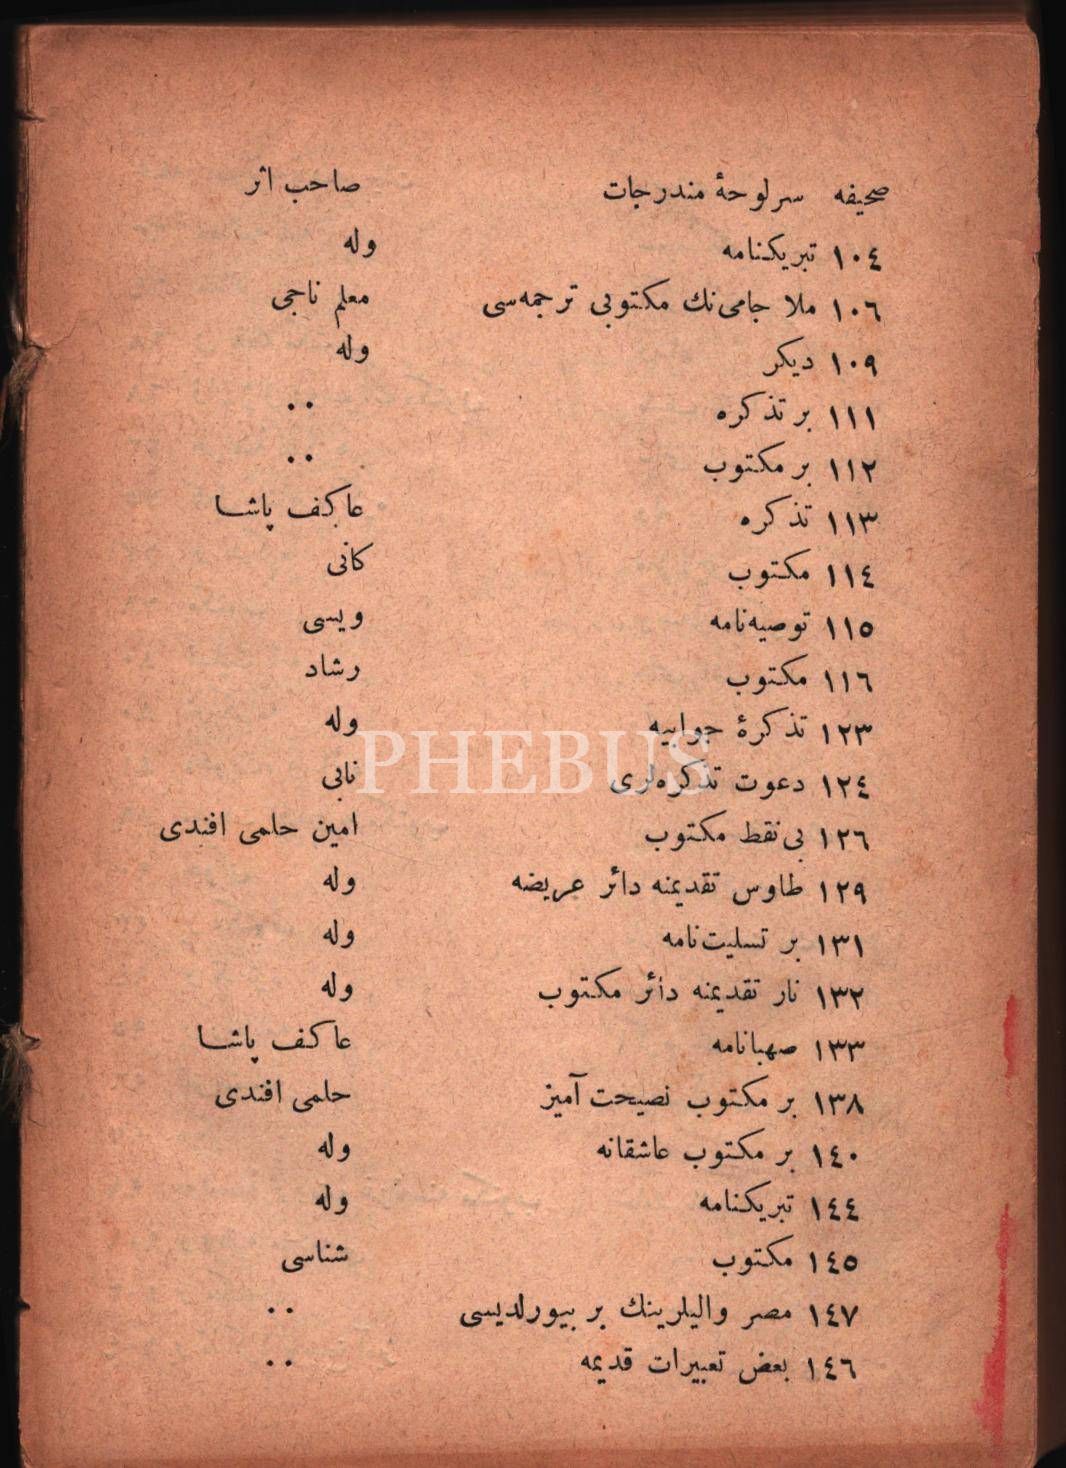 صحیفه سرلوحهٔ مندرجات صاحب اثر
١٠٤ تبریكنامه وله
١٠٦ ملا جامی‌نك مكتوبی ترجمه‌سی معلم ناجی
١٠٩ دیكر وله
١١١ بر تذكره ..
١١٢ بر مكتوب ..
١١٣ تذكره عاكف پاشا
١١٤ مكتوب كانی
١١٥ توصیه‌نامه ویسی
١١٦ مكتوب رشاد
١٢٣ تذكرهٔ جوابیه وله
١٢٤ دعوت تذكره‌لری نابی
PHEBUS
١٢٦ بی‌نقط مكتوب امین حلمی افندی
١٢٩ طاوس تقدیمنه دائر عریضه وله
١٣١ بر تسلیت‌نامه وله
١٣٢ نار تقدیمنه دائر مكتوب وله
١٣٣ صهبانامه عاكف پاشا
١٣٨ بر مكتوب نصیحت آمیز حلمی افندی
١٤٠ بر مكتوب عاشقانه وله
١٤٤ تبریكنامه وله
١٤٥ مكتوب شناسی
١٤٧ مصر والیلرینك بر بیورلدیسی ..
١٤٦ بعض تعبیرات قدیمه ..